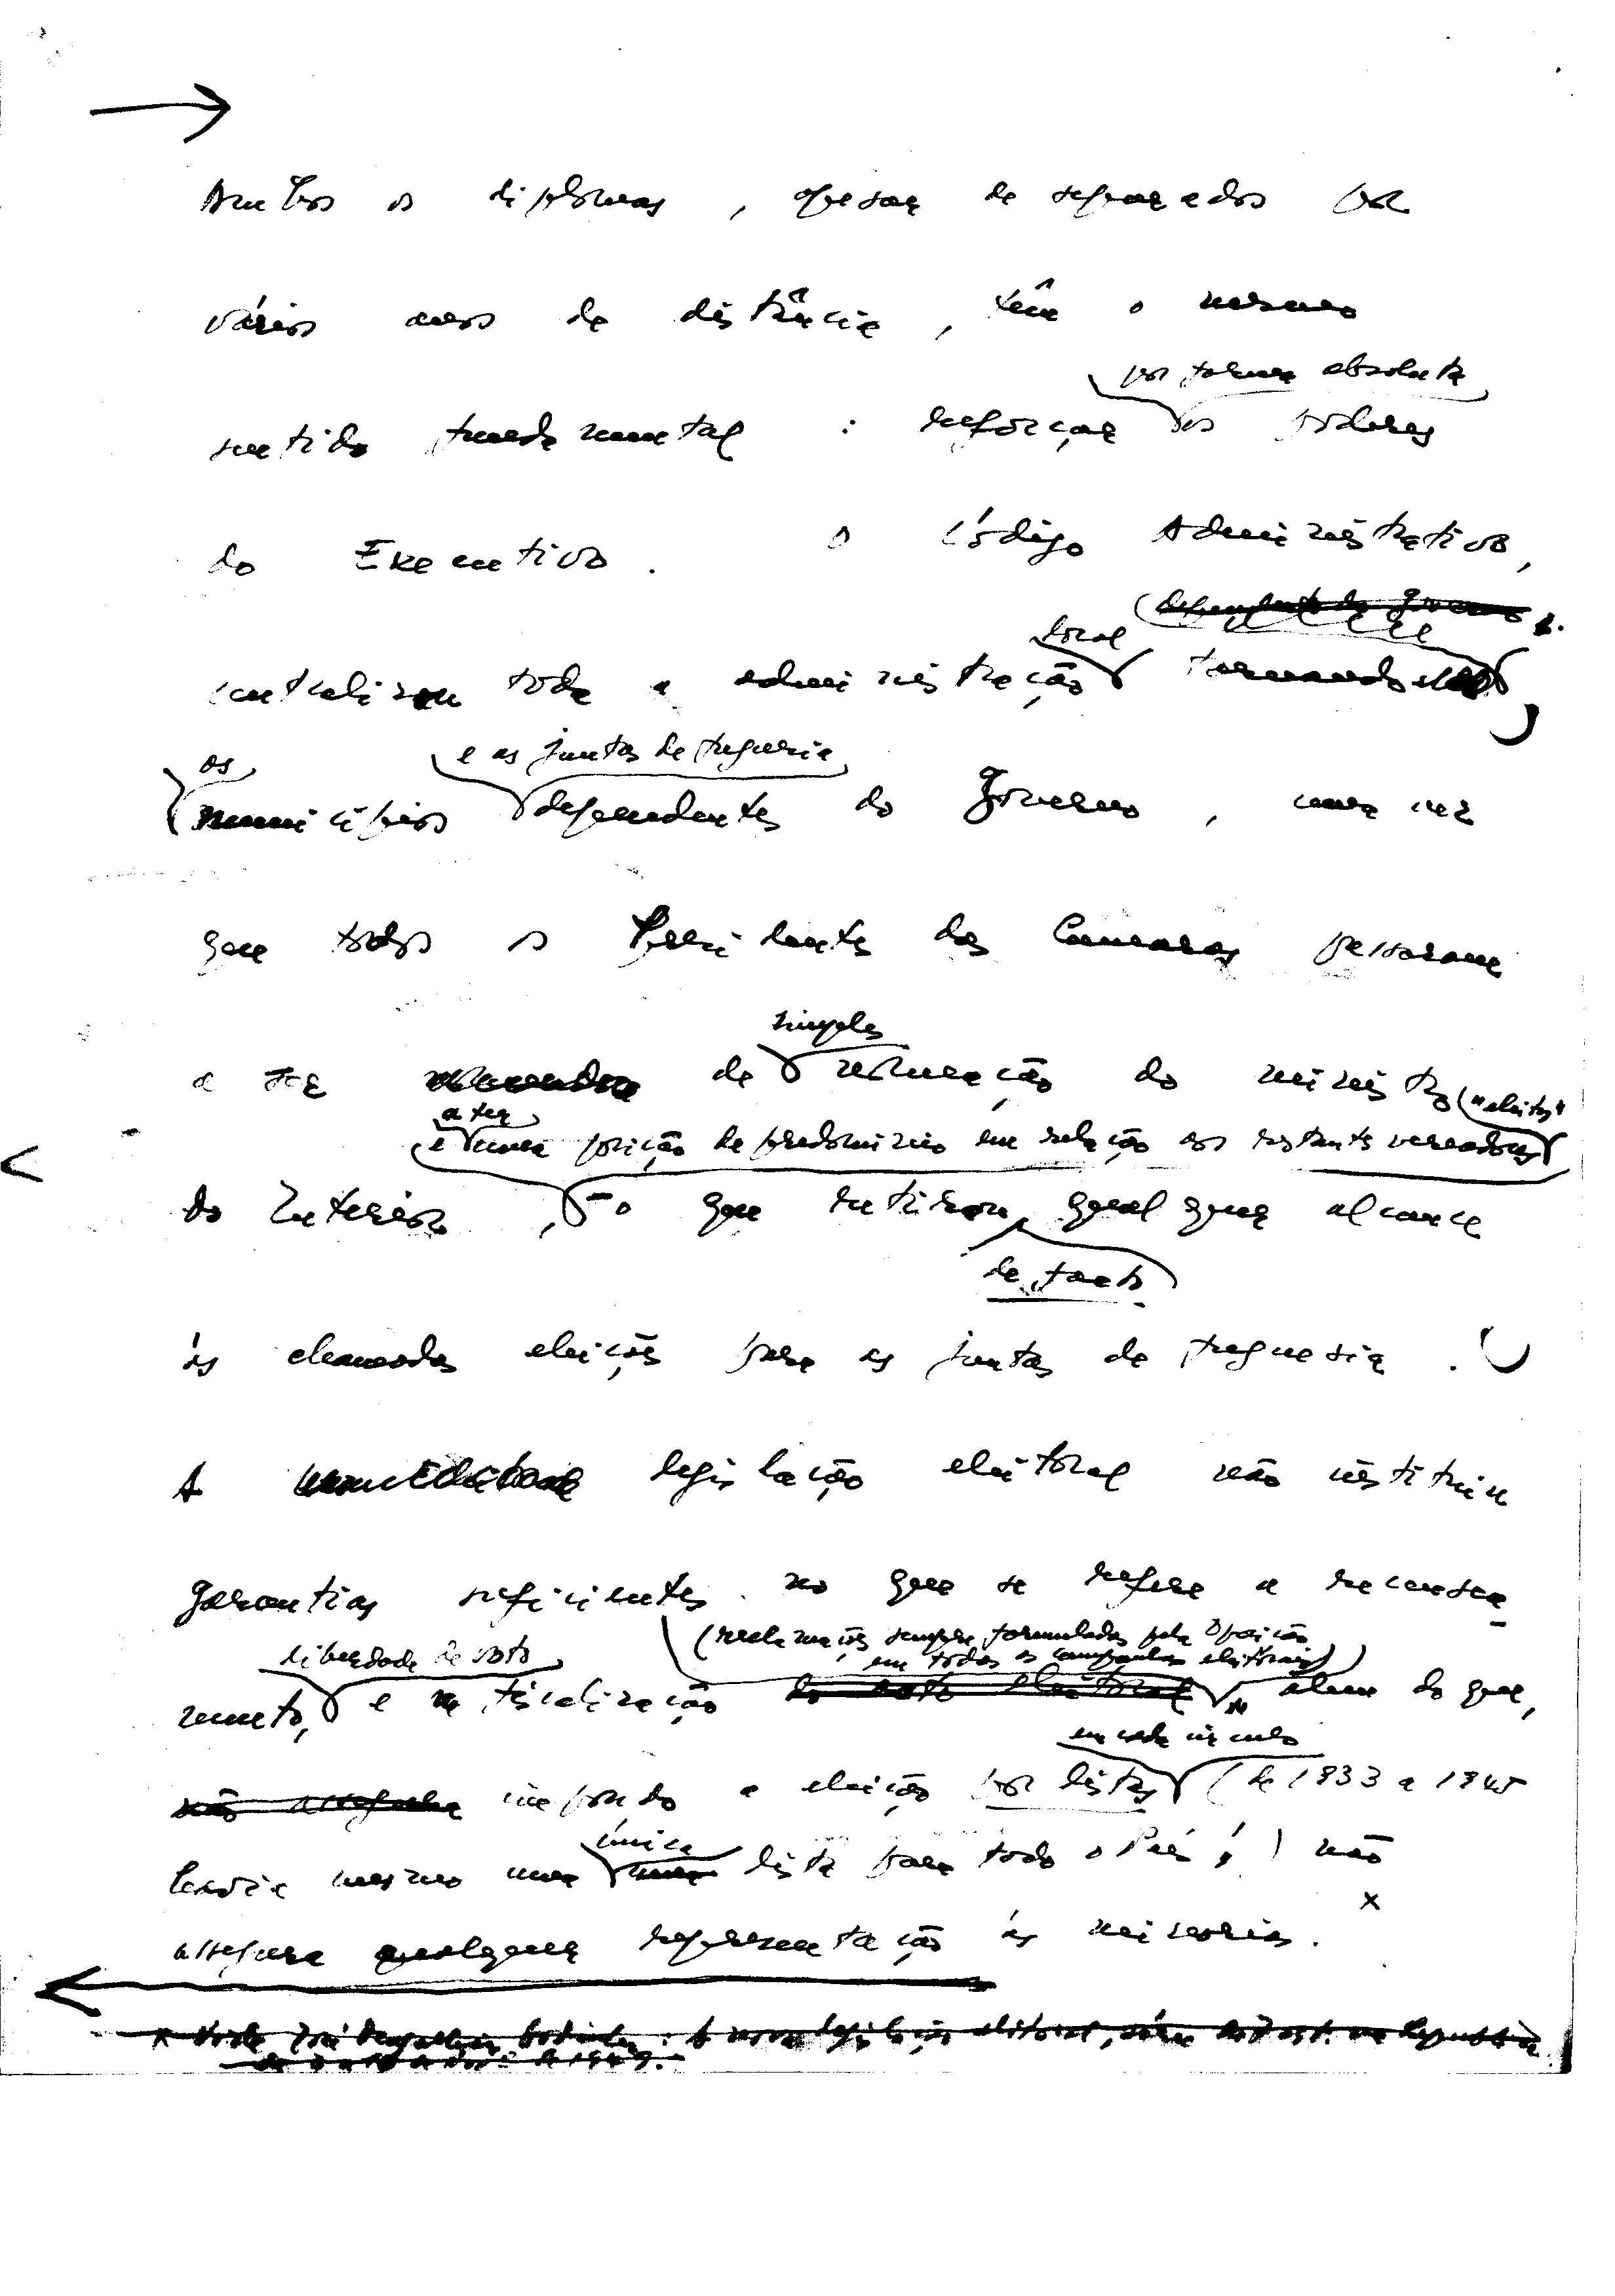 Ambos os diplomas, apesar de separados por
vários anos de distância, têm o mesmo
por forma absoluta
sentido fundamental : reforçar os poderes
do Executivo. O Código Administrativo,
dependente do Governo
local
centralizou toda a administração tornando
os e as juntas de freguesia
municípios dependentes do Governo, uma vez
que todos os Presidentes das Câmaras passaram
simples
a ser de nomeação do ministro ("eleitos"
a ter
e uma posição de predomínio em relação aos restantes vereadores
do Interior, – o que retirou qualquer alcance
de facto
às chamadas eleições para as juntas de freguesia.
A legislação eleitoral não instituiu
garantias suficientes no que se refere a recensea-
(reclamações sempre formuladas pela Oposição
liberdade de voto em todas as campanhas eleitorais)
mento, e fiscalização do acto eleitoral, além do que,
em cada círculo
não assegura impondo a eleição por listas (de 1933 a 1945
única
havia mesmo uma lista para todo o País!) não
x
assegura qualquer representação às minorias.
x Vide José Magalhães Godinho: A nova legislação eleitoral,
de 1969.